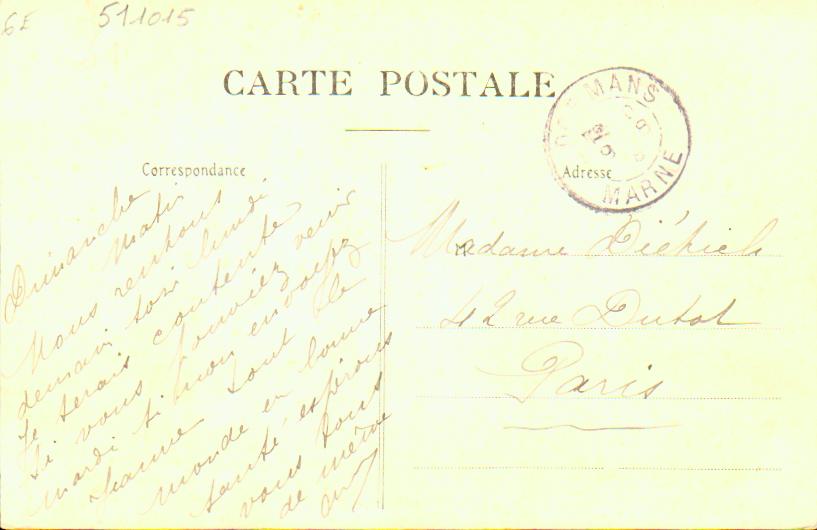 6E 511015
CARTE POSTALE
DORMANS
MARNE
Correspondance
Adresse
Dimanche
Matin
Nous rentrons
demain soir lundi
Je serais contente
Si vous pouviez venir
mardi sinon envoyez
Jeanne tout le
monde en bonne
santé, espérons
vous tous
de même
Madame Diétrich
42 rue Dutot
Paris